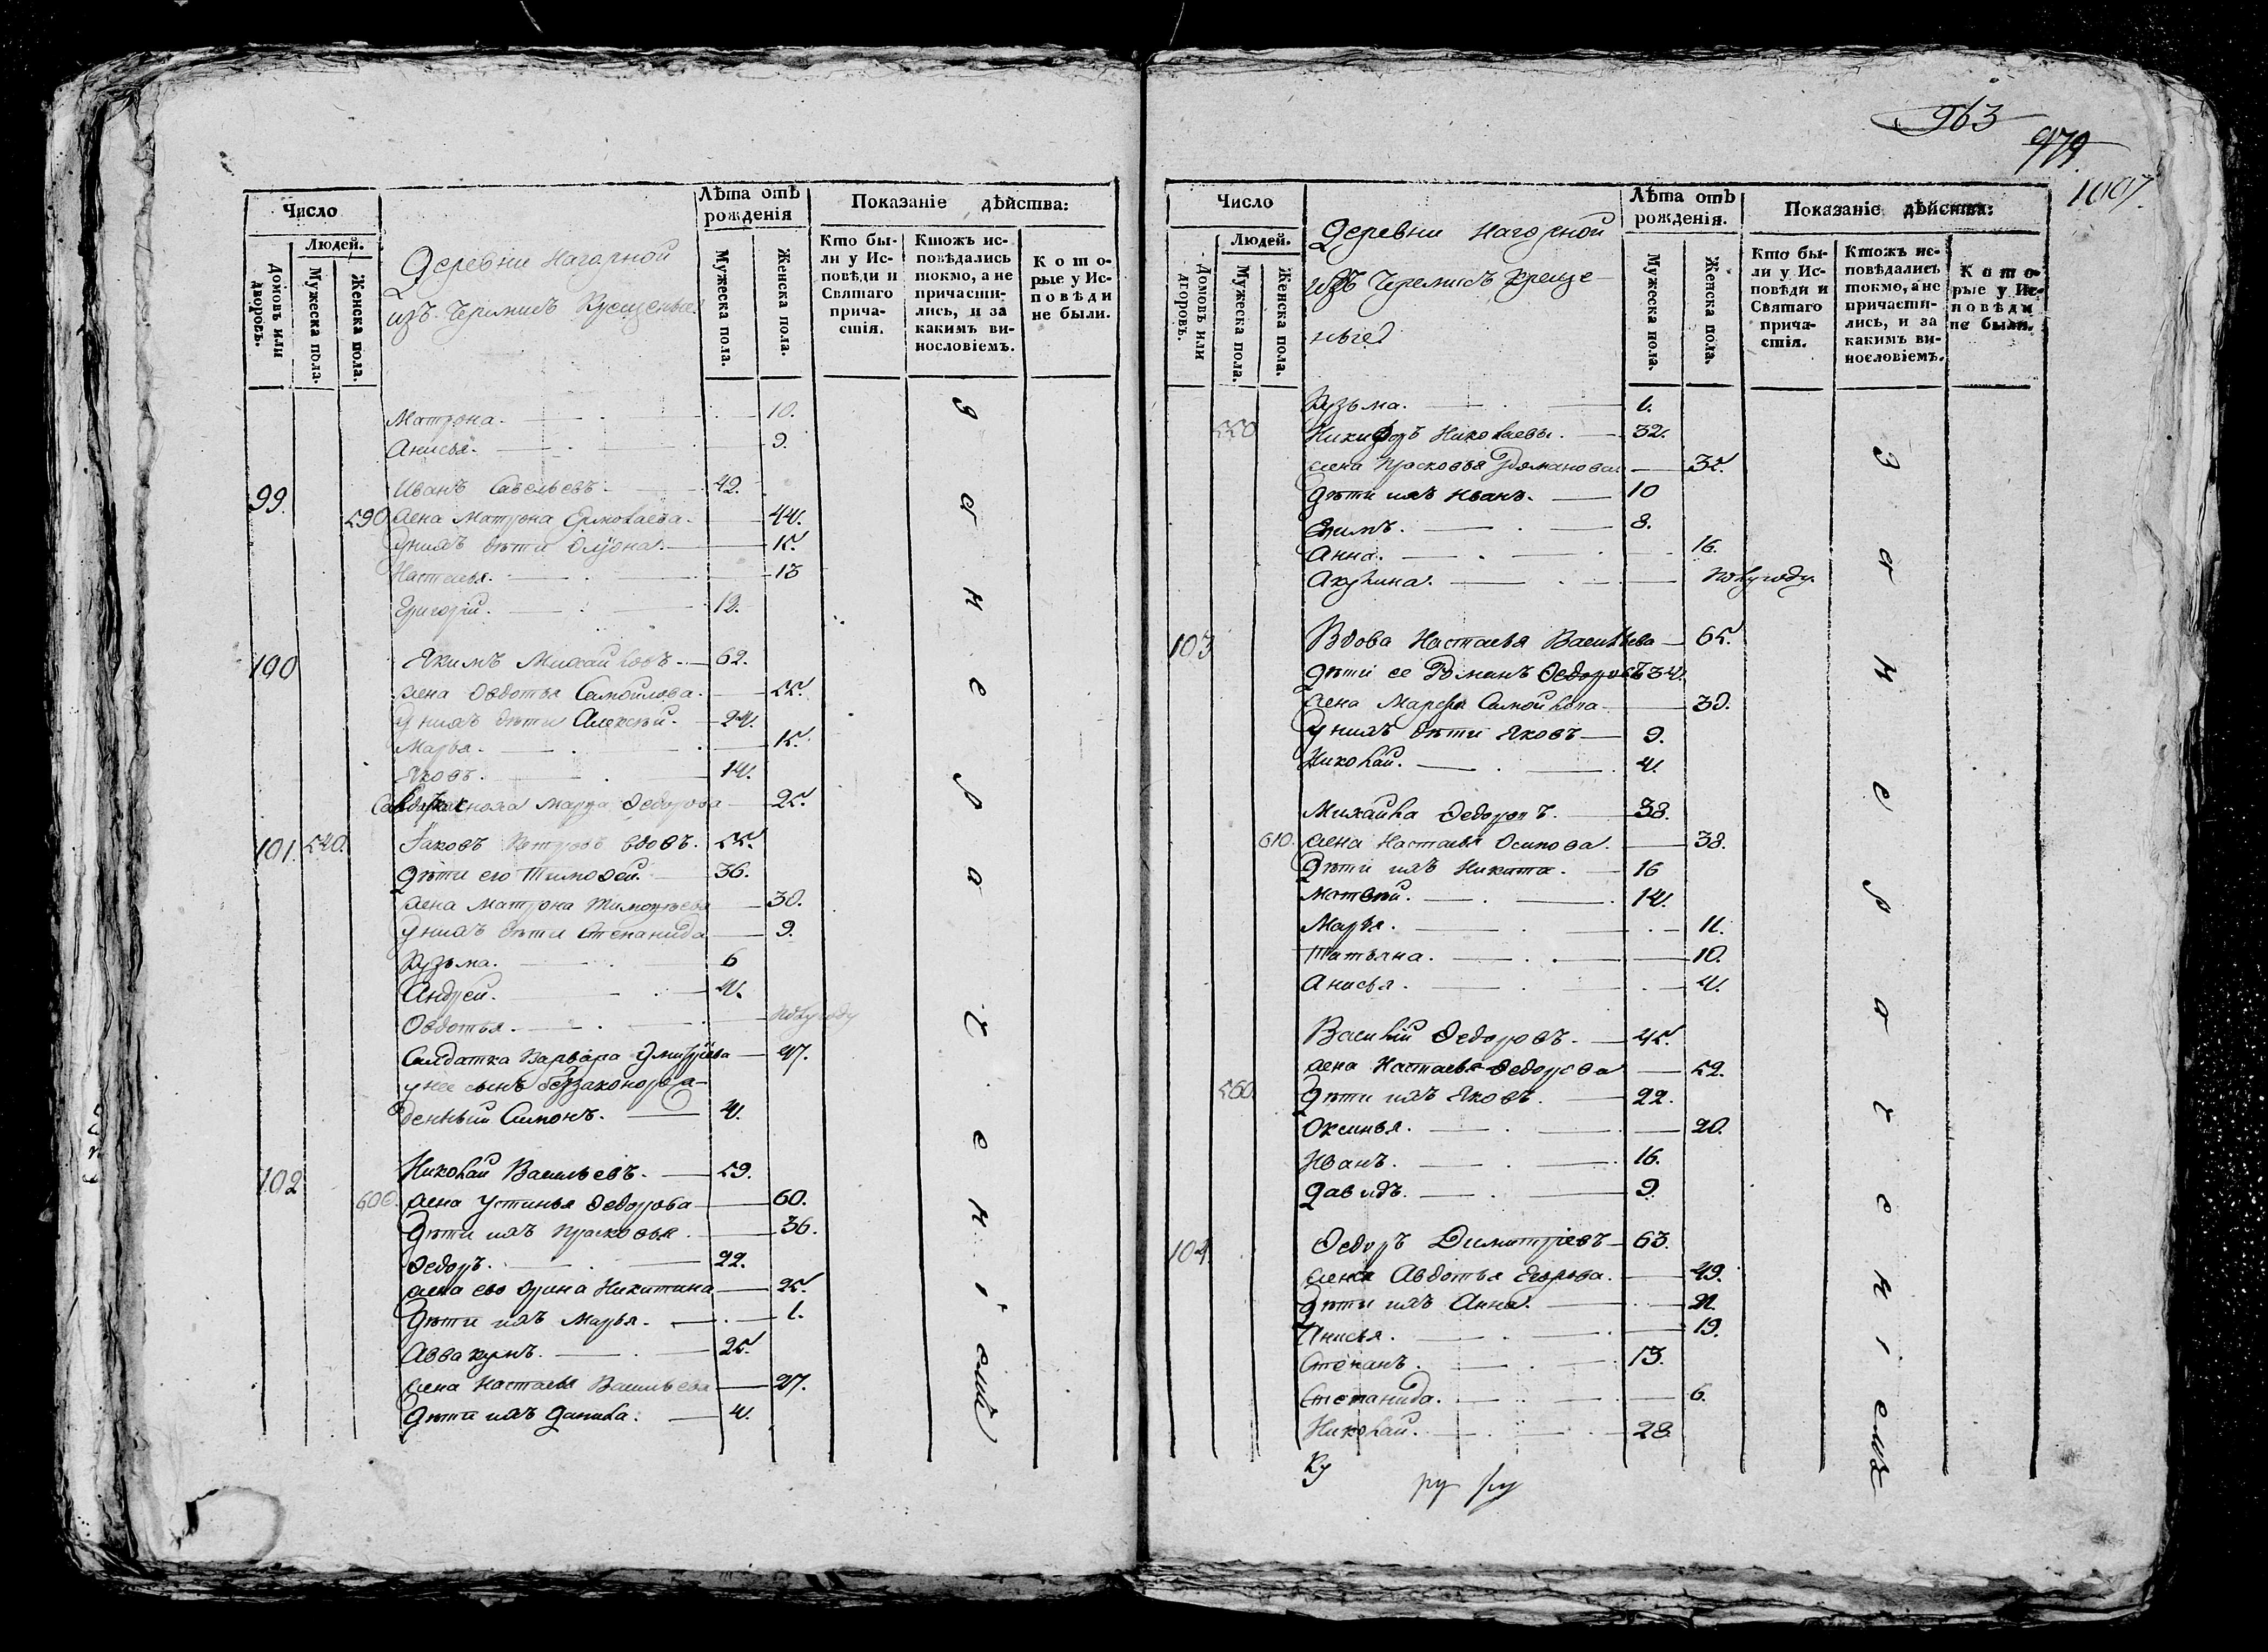 963
979
1007
Число
Лѣта отъ рожденія
Показаніе дѣйства:
Людей.
Домовъ или дворовъ.
Мужеска пола.
Женска пола.
Деревни Нагорной
изъ Черемисъ Крещеные
Мужеска пола.
Женска пола.
Кто бы-
ли у Ис-
повѣди и
Святаго
прича-
стія.
Ктожъ ис-
повѣдались
токмо, а не
причасти-
лись, и за
какимъ ви-
нословіемъ.
Кото-
рые у Ис-
повѣди
не были.
Матрона. 10.
Анисья. 9.
99. Иванъ Савельевъ. 42.
590 жена Матрона Ермолаева. 44.
у нихъ дѣти 15.
Настасья. 13
Григорій. 12.
100 Якимъ Михайловъ. 62.
жена Овдотья Самойлова. 55.
у нихъ дѣти Алексѣй. 24.
Марья. 15.
Яковъ. 14.
Марѳа Ѳедорова 25.
101. 540. Іаковъ Петровъ вдовъ. 55.
Дѣти его Тимоѳей. 36.
жена Матрона Тимоѳеева 30.
у нихъ дѣти Степанида 9.
Кузьма. 6
Андрей. 4.
Овдотья. полугоду
Салдатка Варвара Дмитріева 47.
у нее сынъ беззаконорож-
денный Симонъ. 4.
102 Николай Васильевъ. 59.
600. жена Устинья Ѳедорова 60.
Дѣти ихъ Прасковья. 36.
Ѳедоръ. 22.
жена его Орина Никитина 25.
Дѣти ихъ Марья. 1.
Аввакумъ. 25.
жена Настасья Васильева 27.
Дѣти ихъ Данила. 4.
за нерачениемъ
Число
Лѣта отъ рожденія.
Показаніе дѣйства:
Людей.
Домовъ или дворовъ.
Мужеска пола.
Женска пола.
Деревни Нагорной
изъ Черемисъ Креще-
ные
Мужеска пола.
Женска пола.
Кто бы-
ли у Ис-
повѣди и
Святаго
прича-
стія.
Ктожъ ис-
повѣдались
токмо, а не
причасти-
лись, и за
какимъ ви-
нословіемъ.
Кото-
рые у Ис-
повѣди
не были.
Кузьма. 1.
550 Никифоръ Николаевъ. 32.
жена Прасковья Романова 35.
Дѣти ихъ Иванъ. 10
8.
Анна. 16.
Акулина. полугоду
103 Вдова Настасья Васильева 65.
Дѣти ее Романъ Ѳедоровъ 34.
жена Марѳа Самойлова 30.
у нихъ дѣти Яковъ 9.
Николай. 4.
Михайла Ѳедоровъ. 38.
610. жена Настасья Осипова. 38.
Дѣти ихъ Никита. 16
Матвѣй. 14.
Марья. 11.
Татьяна. 10.
Анисья. 4.
Василій Ѳедоровъ. 45.
жена Настасья Ѳедорова 52.
560. Дѣти ихъ Яковъ. 22.
Оксинья. 20.
Иванъ. 16.
Давидъ. 9.
104. Ѳедоръ Димитріевъ 63.
жена Авдотья Егорова. 49.
Дѣти ихъ Анна. 21.
Анисья. 19.
Степанъ. 13.
Степанида. 6.
Николай. 28.
за нерачениемъ
Ку
ру ру